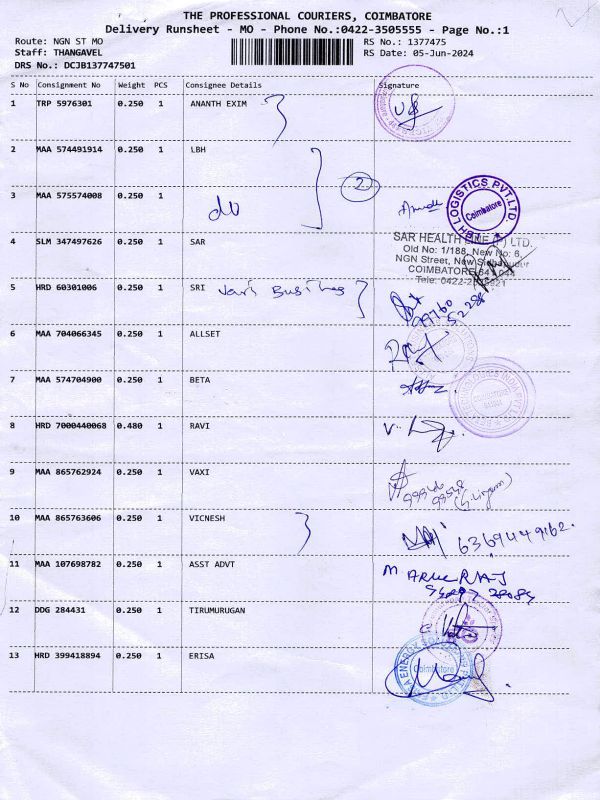 THE PROFESSIONAL COURIERS, COIMBATORE
Delivery Runsheet - MO - Phone No.:0422-3505555 - Page No.:1
Route: NGN ST MO
RS No.: 1377475
Staff: THANGAVEL
RS Date: 05-Jun-2024
DRS No.: DCJB137747501
S No Consignment No Weight PCS Consignee Details Signature
1 TRP 5976301 0.250 1 ANANTH EXIM
2 MAA 574491914 0.250 1 LBH
2
3 MAA 575574008 0.250 1
do
LOGISTICS PVT.LTD.
Coimbatore
4 SLM 347497626 0.250 1 SAR
SAR HEALTH LINE (P) LTD.
Old No: 1/188, New No: 6,
NGN Street, New
COIMBATORE
Tele: 0422-
5 HRD 60301006 0.250 1 SRI
6 MAA 704066345 0.250 1 ALLSET
7 MAA 574704900 0.250 1 BETA
8 HRD 7000440068 0.480 1 RAVI
9 MAA 865762924 0.250 1 VAXI
10 MAA 865763606 0.250 1 VICNESH
6369449162.
11 MAA 107698782 0.250 1 ASST ADVT
M ARUL RAJ
12 DDG 284431 0.250 1 TIRUMURUGAN
13 HRD 399418894 0.250 1 ERISA
Coimbatore